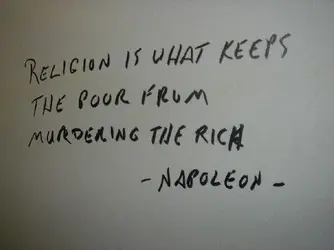 RELIGION IS WHAT KEEPS
THE POOR FROM
MURDERING THE RICH
- NAPOLEON -